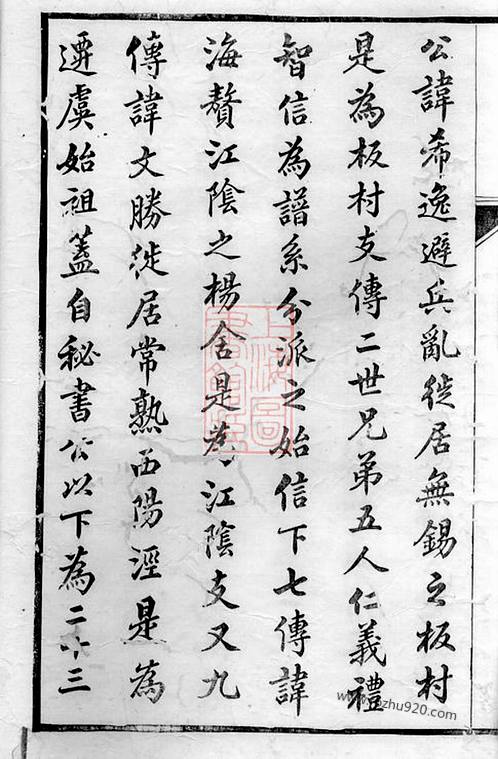 公諱希逸避兵亂徙居無錫之板村
是為板村支傳二世兄弟五人仁義禮
智信為譜系分派之始信下七傳諱
海贅江陰之楊舍是為江陰支又九
傳諱文勝徙居常熟西陽涇是為
遷虞始祖蓋自秘書公以下為二十三
上海圖書館藏